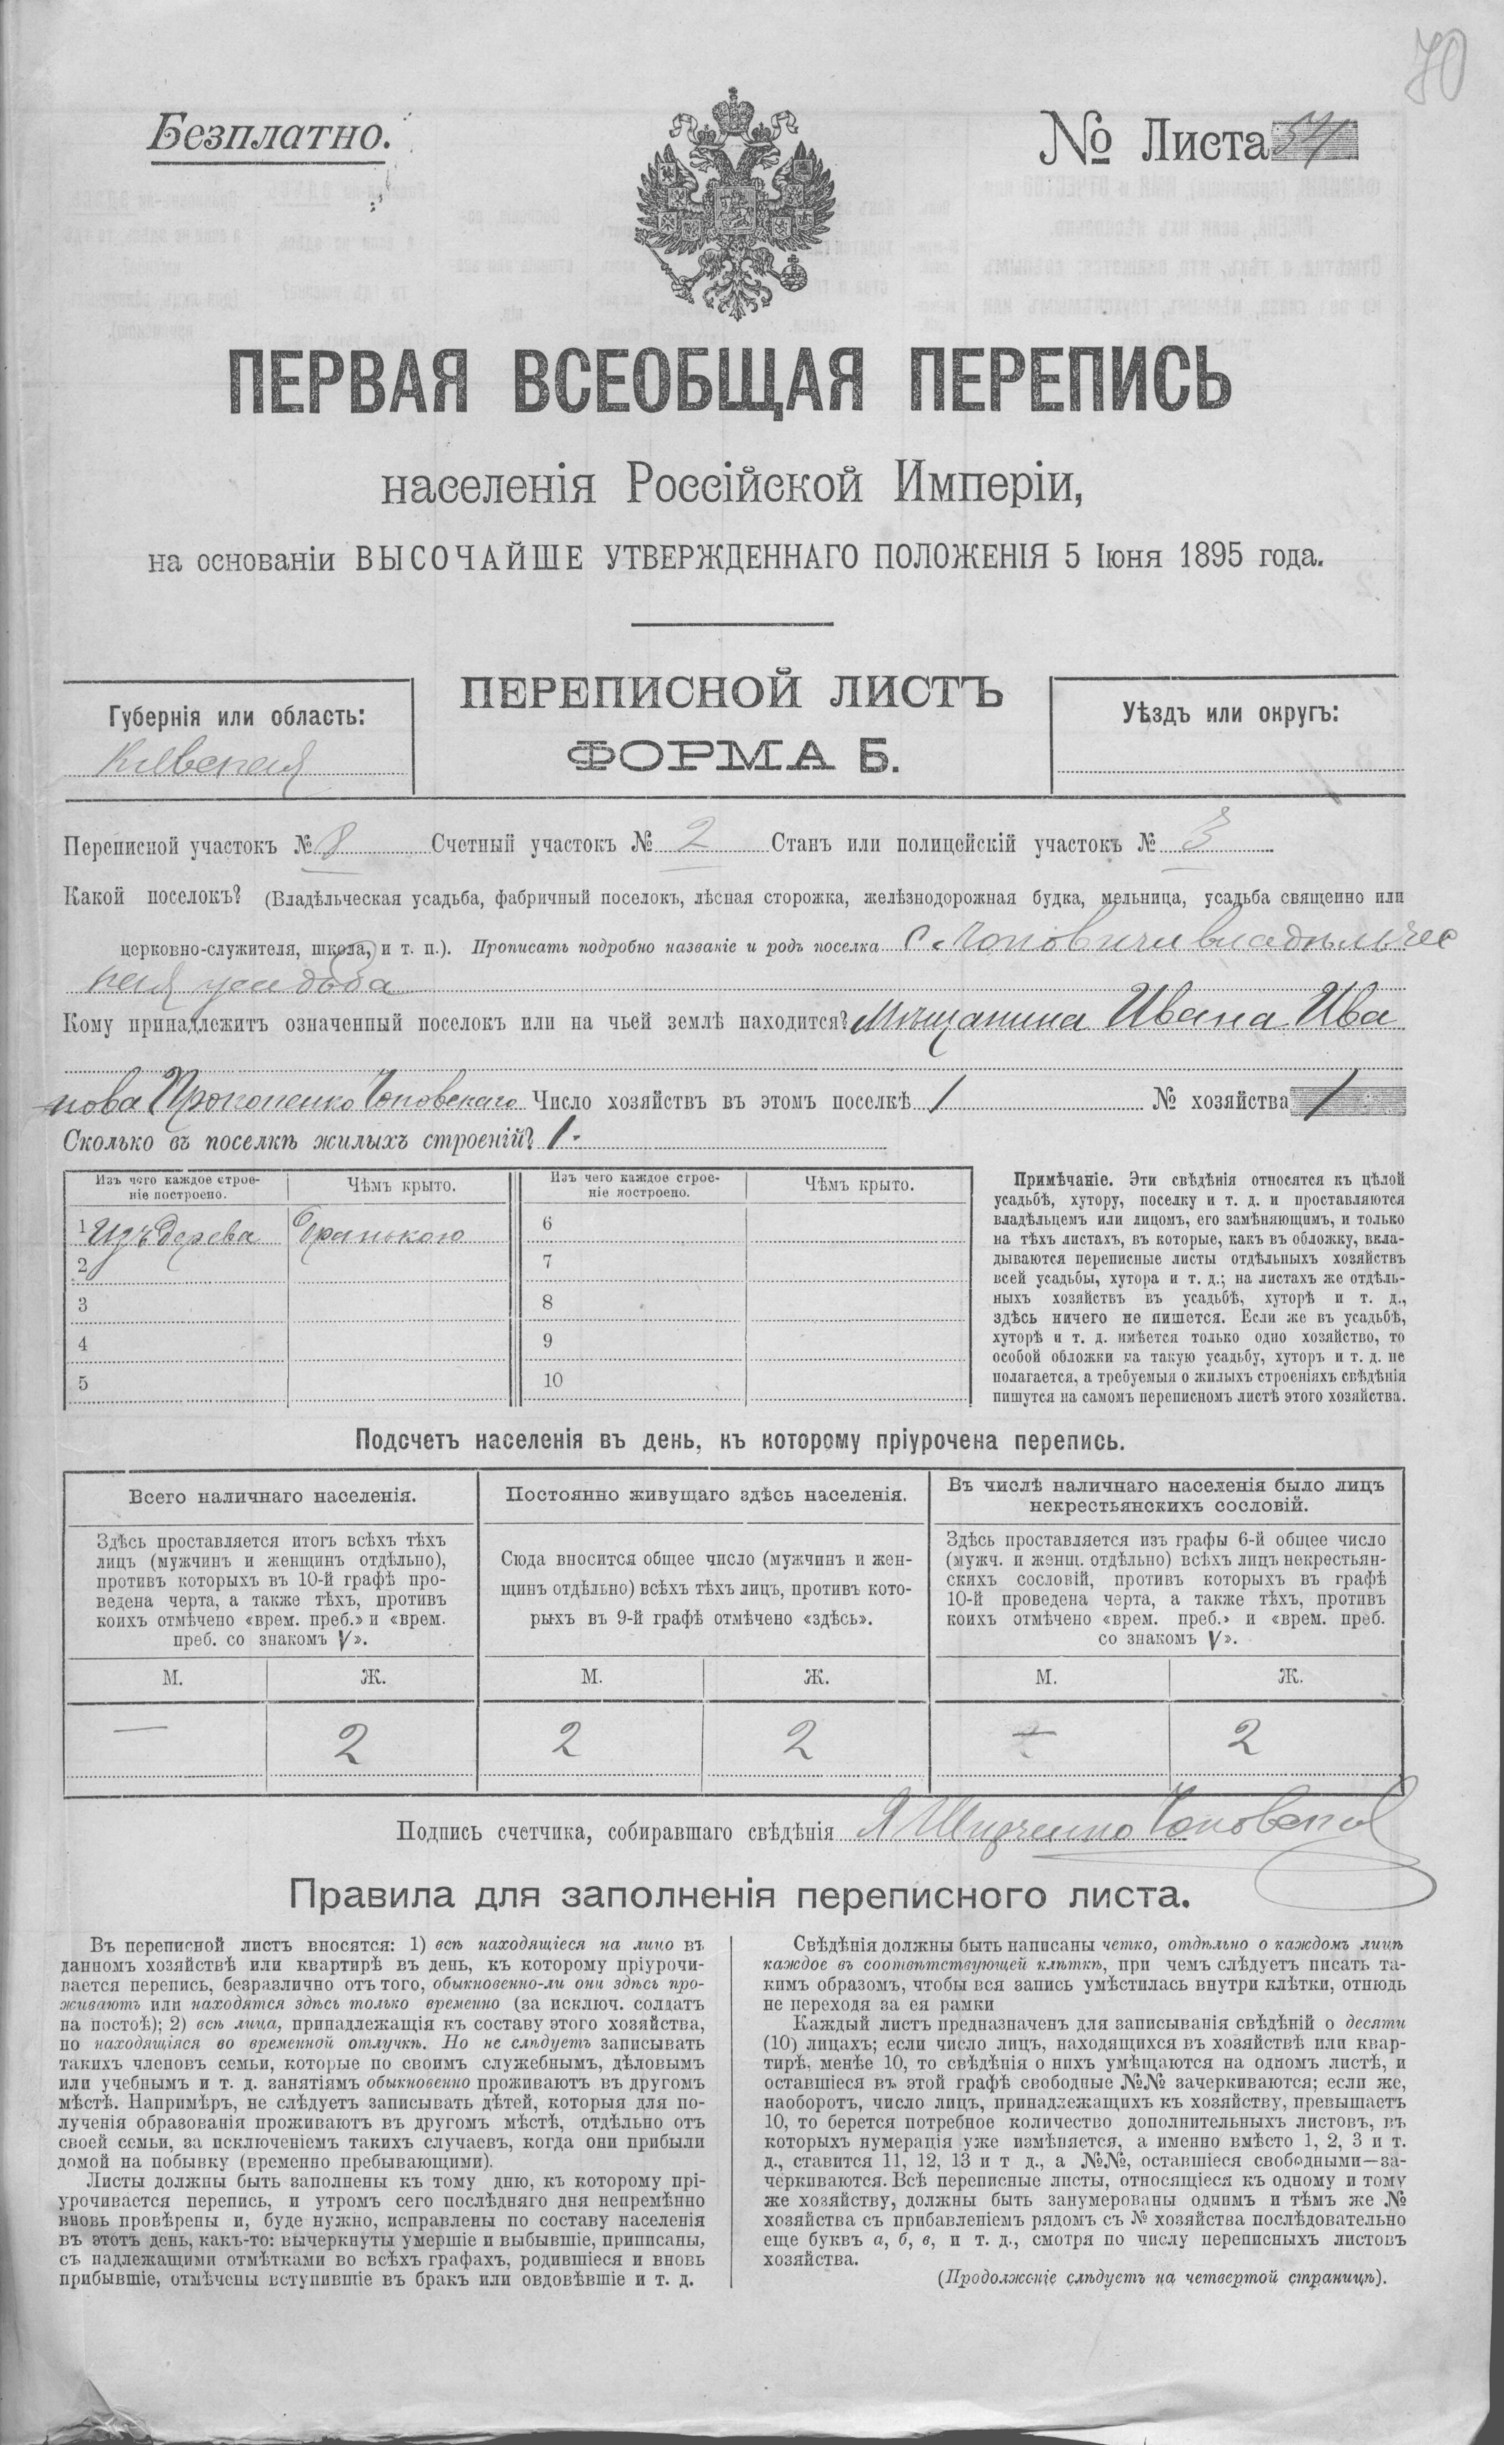 70
Безплатно.
№ Листа 54
ПЕРВАЯ ВСЕОБЩАЯ ПЕРЕПИСЬ
населенія Россійской Имперіи,
на основаніи ВЫСОЧАЙШЕ УТВЕРЖДЕННАГО ПОЛОЖЕНІЯ 5 Іюня 1895 года.
ПЕРЕПИСНОЙ ЛИСТЪ
ФОРМА Б.
Губернія или область:
Кіевская
Уѣздъ или округъ:
Переписной участокъ № 8 Счетный участокъ № 2 Станъ или полицейскій участокъ № 3
Какой поселокъ? (Владѣльческая усадьба, фабричный поселокъ, лѣсная сторожка, желѣзнодорожная будка, мельница, усадьба священно или
церковно-служителя, школа, и т. п.). Прописать подробно названіе и родъ поселка с. Чоповичи владѣльчес
кая усадьба
Кому принадлежитъ означенный поселокъ или на чьей землѣ находится? Мѣщанина Ивана Ива
нова Прокопенко Чоповскаго Число хозяйствъ въ этомъ поселкѣ 1 № хозяйства 1
Сколько въ поселкѣ жилыхъ строеній? 1.
Изъ чего каждое строе-
ніе построено.
Чѣмъ крыто.
Изъ чего каждое строе-
ніе построено.
Чѣмъ крыто.
1 Изъ дерева Дранькою 6
2 7
3 8
4 9
5 10
Примѣчаніе. Эти свѣдѣнія относятся къ цѣлой
усадьбѣ, хутору, поселку и т. д. и проставляются
владѣльцемъ или лицомъ, его замѣняющимъ, и только
на тѣхъ листахъ, въ которые, какъ въ обложку, вкла-
дываются переписные листы отдѣльныхъ хозяйствъ
всей усадьбы, хутора и т. д.; на листахъ же отдѣль-
ныхъ хозяйствъ въ усадьбѣ, хуторѣ и т. д.,
здѣсь ничего не пишется. Если же въ усадьбѣ,
хуторѣ и т. д. имѣется только одно хозяйство, то
особой обложки на такую усадьбу, хуторъ и т. д. не
полагается, а требуемыя о жилыхъ строеніяхъ свѣдѣнія
пишутся на самомъ переписномъ листѣ этого хозяйства.
Подсчетъ населенія въ день, къ которому пріурочена перепись.
Всего наличнаго населенія.
Здѣсь проставляется итогъ всѣхъ тѣхъ
лицъ (мужчинъ и женщинъ отдѣльно),
противъ которыхъ въ 10-й графѣ про-
ведена черта, а также тѣхъ, противъ
коихъ отмѣчено «врем. преб.» и «врем.
преб. со знакомъ V».
Постоянно живущаго здѣсь населенія.
Сюда вносится общее число (мужчинъ и жен-
щинъ отдѣльно) всѣхъ тѣхъ лицъ, противъ кото-
рыхъ въ 9-й графѣ отмѣчено «здѣсь».
Въ числѣ наличнаго населенія было лицъ
некрестьянскихъ сословій.
Здѣсь проставляется изъ графы 6-й общее число
(мужч. и женщ. отдѣльно) всѣхъ лицъ некрестьян-
скихъ сословій, противъ которыхъ въ графѣ
10-й проведена черта, а также тѣхъ, противъ
коихъ отмѣчено «врем. преб.» и «врем. преб.
со знакомъ V».
М. Ж. М. Ж. М. Ж.
— 2 2 2 — 2
Подпись счетчика, собиравшаго свѣдѣнія Чоповский
Правила для заполненія переписного листа.
Въ переписной листъ вносятся: 1) всѣ находящіеся на лицо въ
данномъ хозяйствѣ или квартирѣ въ день, къ которому пріурочи-
вается перепись, безразлично отъ того, обыкновенно-ли они здѣсь про-
живаютъ или находятся здѣсь только временно (за исключ. солдатъ
на постоѣ); 2) всѣ лица, принадлежащія къ составу этого хозяйства,
но находящіяся во временной отлучкѣ. Но не слѣдуетъ записывать
такихъ членовъ семьи, которые по своимъ служебнымъ, дѣловымъ
или учебнымъ и т. д. занятіямъ обыкновенно проживаютъ въ другомъ
мѣстѣ. Напримѣръ, не слѣдуетъ записывать дѣтей, которыя для по-
лученія образованія проживаютъ въ другомъ мѣстѣ, отдѣльно отъ
своей семьи, за исключеніемъ такихъ случаевъ, когда они прибыли
домой на побывку (временно пребывающими).
Листы должны быть заполнены къ тому дню, къ которому прі-
урочивается перепись, и утромъ сего послѣдняго дня непремѣнно
вновь провѣрены и, буде нужно, исправлены по составу населенія
въ этотъ день, какъ-то: вычеркнуты умершіе и выбывшіе, приписаны,
съ надлежащими отмѣтками во всѣхъ графахъ, родившіеся и вновь
прибывшіе, отмѣчены вступившіе въ бракъ или овдовѣвшіе и т. д.
Свѣдѣнія должны быть написаны четко, отдѣльно о каждомъ лицѣ
каждое въ соотвѣтствующей клѣткѣ, при чемъ слѣдуетъ писать та-
кимъ образомъ, чтобы вся запись умѣстилась внутри клѣтки, отнюдь
не переходя за ея рамки
Каждый листъ предназначенъ для записыванія свѣдѣній о десяти
(10) лицахъ; если число лицъ, находящихся въ хозяйствѣ или квар-
тирѣ, менѣе 10, то свѣдѣнія о нихъ умѣщаются на одномъ листѣ, и
оставшіеся въ этой графѣ свободные №№ зачеркиваются; если же,
наоборотъ, число лицъ, принадлежащихъ къ хозяйству, превышаетъ
10, то берется потребное количество дополнительныхъ листовъ, въ
которыхъ нумерація уже измѣняется, а именно вмѣсто 1, 2, 3 и т.
д., ставится 11, 12, 13 и т д., а №№, оставшіеся свободными—за-
черкиваются. Всѣ переписные листы, относящіеся къ одному и тому
же хозяйству, должны быть занумерованы однимъ и тѣмъ же №
хозяйства съ прибавленіемъ рядомъ съ № хозяйства послѣдовательно
еще буквъ а, б, в, и т. д., смотря по числу переписныхъ листовъ
хозяйства.
(Продолженіе слѣдуетъ на четвертой страницѣ).